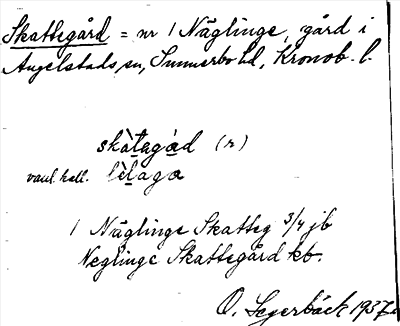 Skattegård = nr 1 Näglinge, gård i
Angelstads sn, Sunnerbo hd, Kronob. l.
skàtagå̀d (r)
vanl. kall. lèlaga
1 Näglinge Skatteg 3/4 jb
Neglinge Skattegård kb.
O. Segerbäck 1937